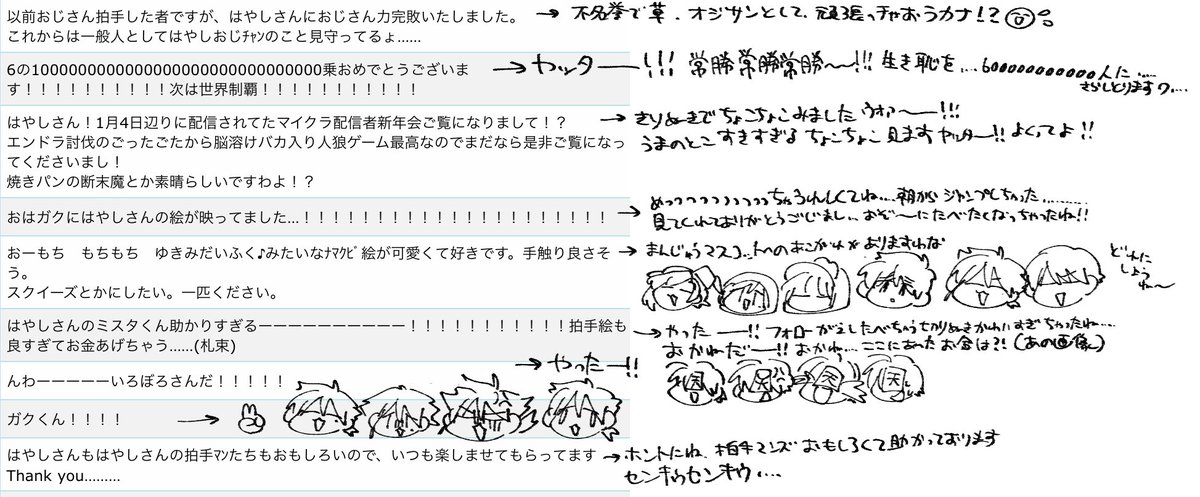 以前おじさん拍手した者ですが、はやしさんにおじさん力完敗いたしました。
これからは一般人としてはやしおじﾁｬﾝのこと見守ってるょ……
→ 不名誉で草．オジサンとして、頑張っチャおうカナ！？
6の10000000000000000000000000000000000乗おめでとうございま
す！！！！！！！！！！次は世界制覇！！！！！！！！！！！
→ ヤッター―！！！ 常勝常勝常勝〜〜！！！ 生き恥を…6000000000000人に……
さらしとりますワ…
はやしさん！1月4日辺りに配信されてたマイクラ配信者新年会ご覧になりまして！？
エンドラ討伐のごったごたから脳溶けバカ入り人狼ゲーム最高なのでまだなら是非ご覧になっ
てくださいまし！
焼きパンの断末魔とか素晴らしいですわよ！？
→ きりぬきでちょこちょこみました ウオァ〜―！！！
うまのとこ すきすぎる ちょこちょこ 見ます ヤッター―！！ よくってよ！！
おはガクにはやしさんの絵が映ってました…！！！！！！！！！！！！！！！！！！！！！
→ めっっっっっっっっっちゃうれしくてね…朝からジャンプしちゃった………
見てくれておりがとうごじまし…おぞ〜にたべたくなっちゃったね！！
おーもち　もちもち　ゆきみだいふく♪みたいなﾅﾏｸﾋﾞ絵が可愛くて好きです。手触り良さそ
う。
スクイーズとかにしたい。一匹ください。
→ まんじゅうマスコットへのあこがれがありますわな
どれにしようね〜
はやしさんのミスタくん助かりすぎるーーーーーーーーーー！！！！！！！！！！！拍手絵も
良すぎてお金あげちゃう……(札束)
→ やった―！！ フォローがえしたべちゃうきりぬきかわいすぎちゃったね……
おかねだ―！！ おかね…ここにあったお金は？！（あの画像）
んわーーーーーいろぼろさんだ！！！！！
→ やった―！！
ガクくん！！！！
→
はやしさんもはやしさんの拍手ﾏﾝたちもおもしろいので、いつも楽しませてもらってます
Thank you………
→ ホントにね、拍手マンズおもしろくて助かっております
センキウセンキウ……